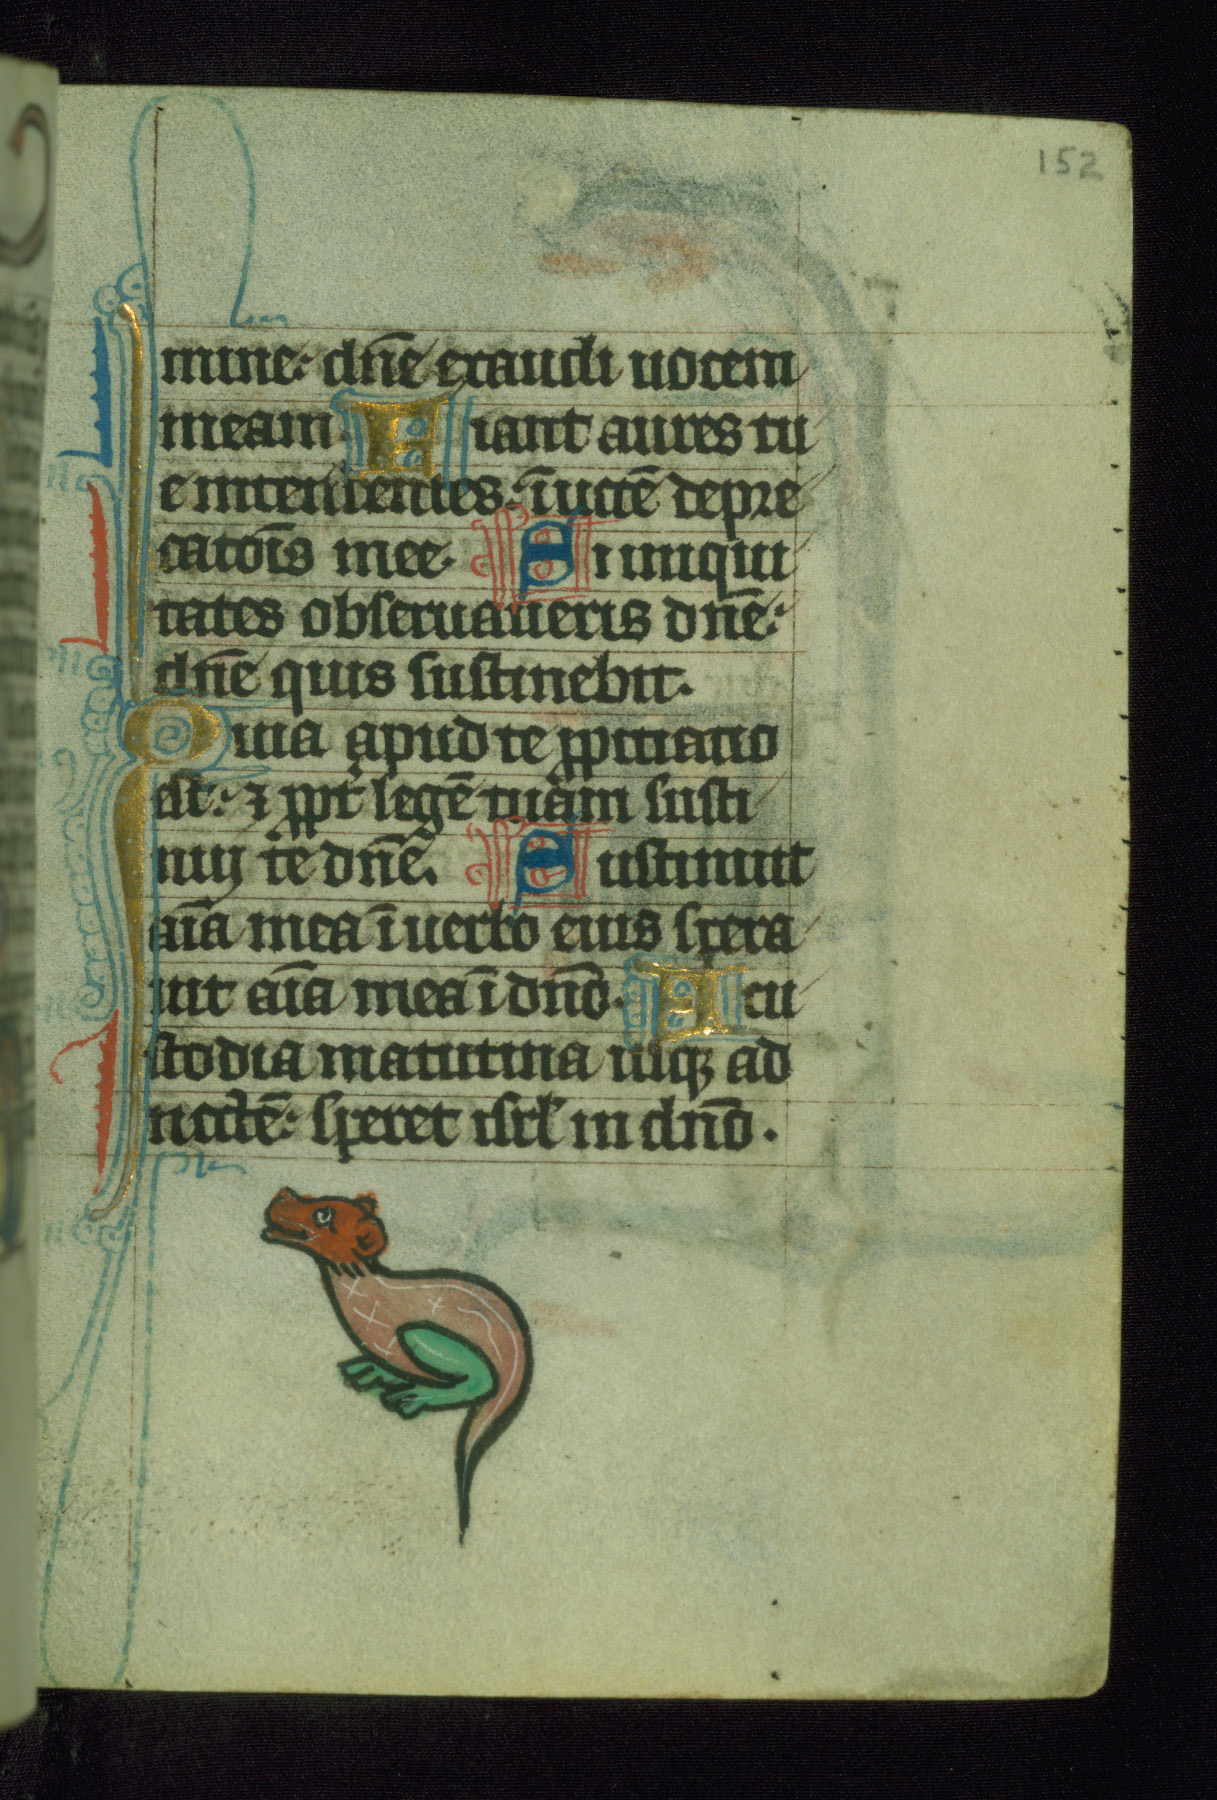 152
mine: dn̄e exaudi uocem
meam. Fiant aures tu
e intendentes: ī uocē depre
catōis mee. Si iniqui
tates obseruaueris dn̄e:
dn̄e quis sustinebit.
Quia apud te ꝓpitiatio
est: ⁊ ꝓpt̄ legē tuam susti
nuy te dn̄e. Sustinuit
aīa mea ī uerbo eius spera
uit aīa mea ī dn̄o. A cu
stodia matutina usqꝫ ad
noctē: speret isrl̄ in dn̄o.